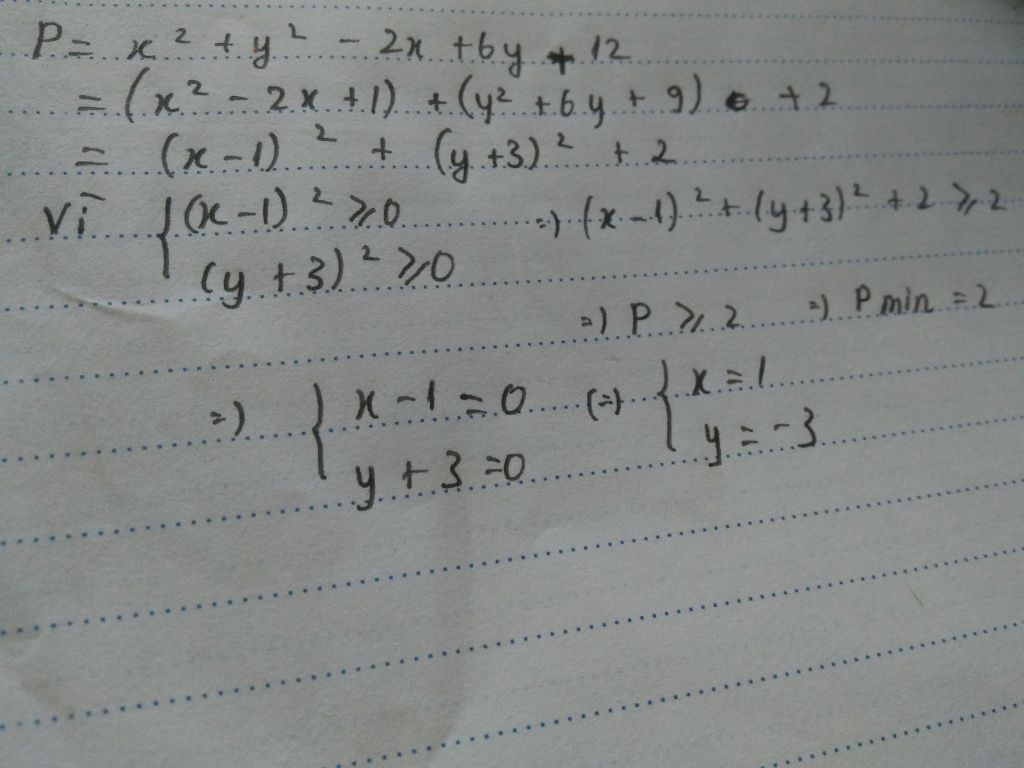 P = x² + y² - 2x + 6y + 12
= (x² - 2x + 1) + (y² + 6y + 9) + 2
= (x - 1)² + (y + 3)² + 2
Vì { (x - 1)² ≥ 0 => (x - 1)² + (y + 3)² + 2 ≥ 2
(y + 3)² ≥ 0
=> P ≥ 2 => P min = 2
=> { x - 1 = 0 (=> { x = 1
y + 3 = 0 y = -3